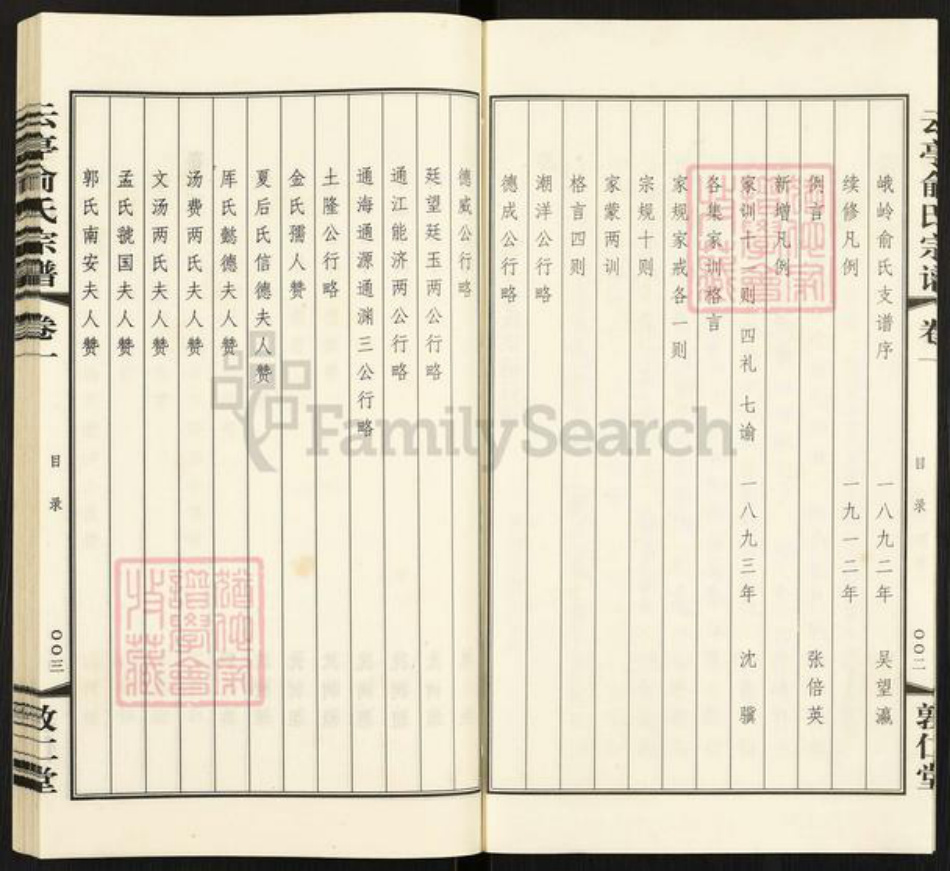 云亭俞氏宗谱 卷一 目录 〇〇二 敦仁堂
峨岭俞氏支谱序 一八九二年 吴望瀛
续修凡例 一九一二年
例言 张倍英
新增凡例
家训十八则 四礼 七谕 一八九三年 沈骥
各集家训格言
家规家戒各一则
宗规十则
家蒙两训
格言四则
潮洋公行略
德成公行略
德威公行略
廷望廷玉两公行略
通江能济两公行略
通海通源通渊三公行略
士隆公行略
金氏孺人赞
夏后氏信德夫人赞
厍氏懿德夫人赞
汤费两氏夫人赞
文汤两氏夫人赞
孟氏虢国夫人赞
郭氏南安夫人赞
云亭俞氏宗谱 卷一 目录 〇〇三 敦仁堂
FamilySearch